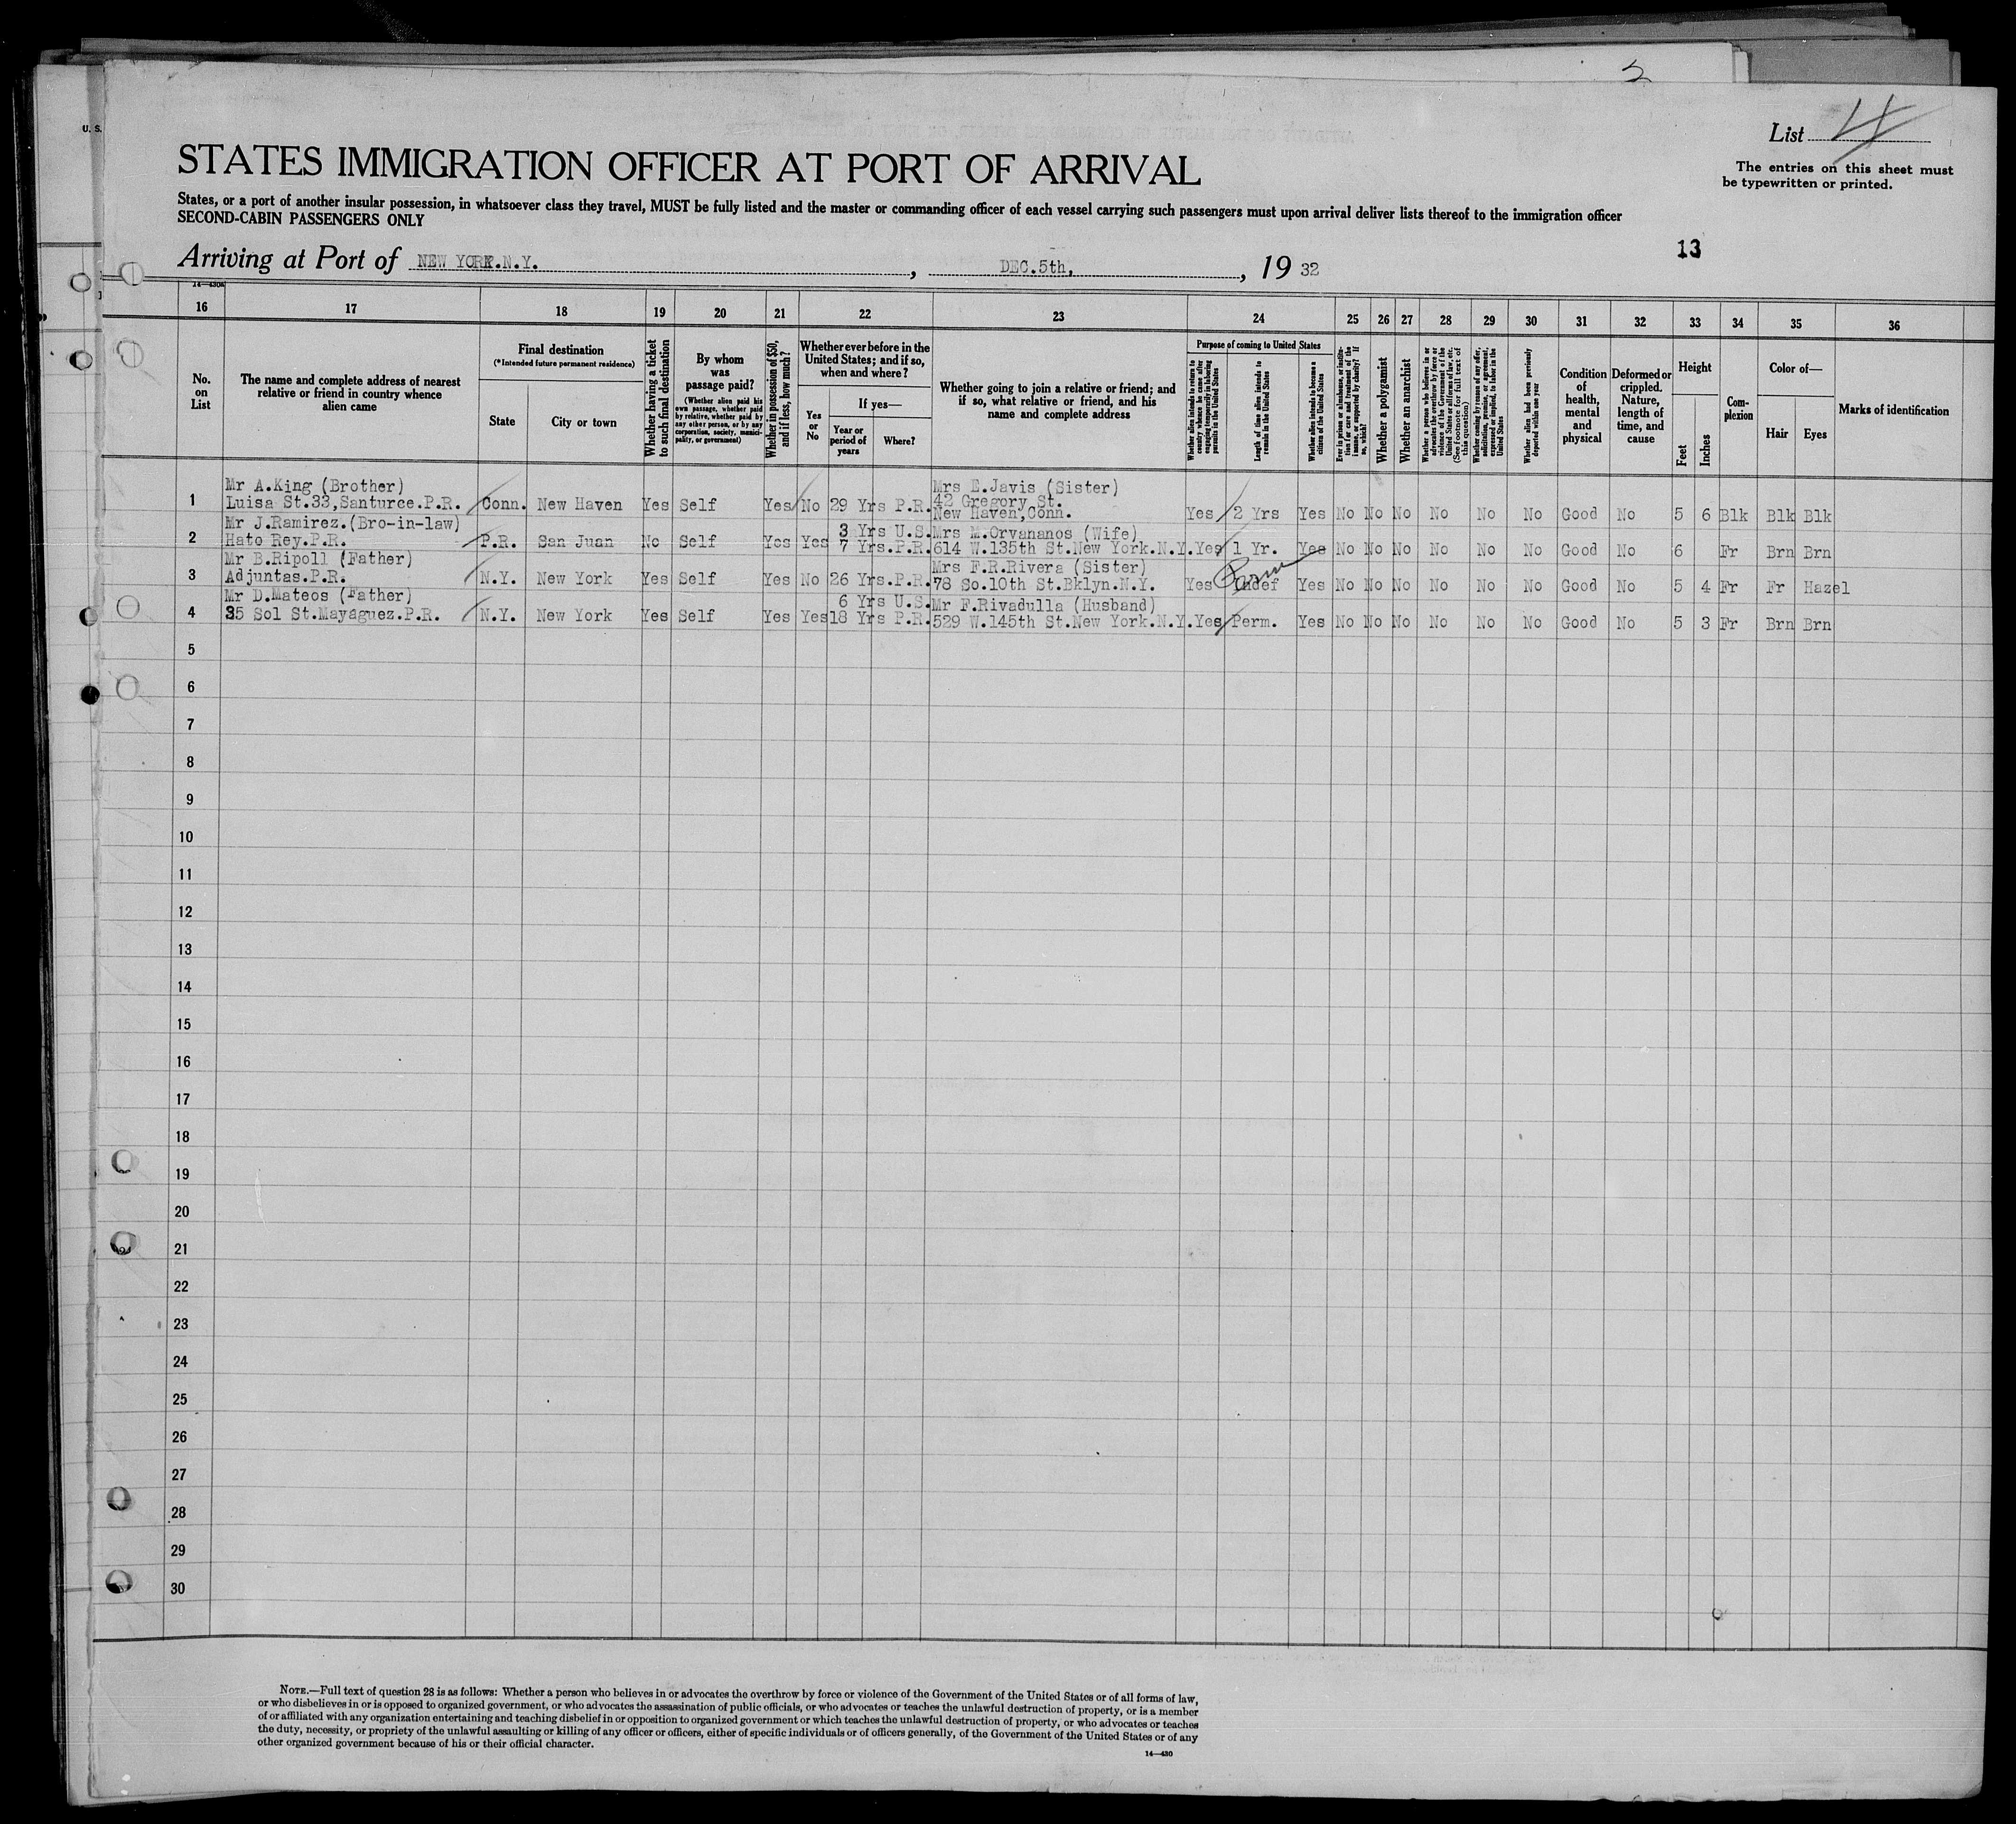 2
U. S.
List 4
The entries on this sheet must
be typewritten or printed.
STATES IMMIGRATION OFFICER AT PORT OF ARRIVAL
States, or a port of another insular possession, in whatsoever class they travel, MUST be fully listed and the master or commanding officer of each vessel carrying such passengers must upon arrival deliver lists thereof to the immigration officer
SECOND-CABIN PASSENGERS ONLY
13
Arriving at Port of NEW YORK.N.Y. , DEC.5th, , 19 32
14—430a
16 17 18 19 20 21 22 23 24 25 26 27 28 29 30 31 32 33 34 35 36
No.
on
List
The name and complete address of nearest
relative or friend in country whence
alien came
Final destination
(*Intended future permanent residence)
State
City or town
Whether having a ticket
to such final destination
By whom
was
passage paid?
(Whether alien paid his
own passage, whether paid
by relative, whether paid by
any other person, or by any
corporation, society, munici-
pality, or government)
Whether in possession of $50,
and if less, how much?
Whether ever before in the
United States; and if so,
when and where?
Yes
or
No
If yes—
Year or
period of
years
Where?
Whether going to join a relative or friend; and
if so, what relative or friend, and his
name and complete address
Purpose of coming to United States
Whether alien intends to return to
country whence he came after
engaging temporarily in laboring
pursuits in the United States
Length of time alien intends to
remain in the United States
Whether alien intends to become a
citizen of the United States
Ever in prison or almshouse, or institu-
tion for care and treatment of the
insane, or supported by charity? If
so, which?
Whether a polygamist
Whether an anarchist
Whether a person who believes in or
advocates the overthrow by force or
violence of the Government of the
United States or all forms of law, etc.
(See footnote for full text of
this question)
Whether coming by reason of any offer,
solicitation, promise, or agreement,
expressed or implied, to labor in the
United States
Whether alien had been previously
deported within one year
Condition
of
health,
mental
and
physical
Deformed or
crippled.
Nature,
length of
time, and
cause
Height
Feet
Inches
Com-
plexion
Color of—
Hair
Eyes
Marks of identification
Mr A.King (Brother) Mrs E.Javis (Sister)
42 Gregory St.
1 Luisa St.33,Santurce.P.R. Conn. New Haven Yes Self Yes No 29 Yrs P.R. New Haven,Conn. Yes 2 Yrs Yes No No No No No No Good No 5 6 Blk Blk Blk
Mr J.Ramirez.(Bro-in-law) 3 Yrs U.S. Mrs M.Orvananos (Wife)
2 Hato Rey.P.R. P.R. San Juan No Self Yes Yes 7 Yrs.P.R. 614 W.135th St.New York.N.Y. Yes 1 Yr. Yes No No No No No No Good No 6 Fr Brn Brn
Mr B.Ripoll (Father) Mrs F.R.Rivera (Sister) Perm
3 Adjuntas.P.R. N.Y. New York Yes Self Yes No 26 Yrs.P.R. 78 So.10th St.Bklyn.N.Y. Yes Indef Yes No No No No No No Good No 5 4 Fr Fr Hazel
Mr D.Mateos (Father) 6 Yrs U.S. Mr F.Rivadulla (Husband)
4 35 Sol St.Mayaguez.P.R. N.Y. New York Yes Self Yes Yes 18 Yrs P.R. 529 W.145th St.New York.N.Y. Yes Perm. Yes No No No No No No Good No 5 3 Fr Brn Brn
5
6
7
8
9
10
11
12
13
14
15
16
17
18
19
20
21
22
23
24
25
26
27
28
29
30
NOTE.—Full text of question 28 is as follows: Whether a person who believes in or advocates the overthrow by force or violence of the Government of the United States or of all forms of law,
or who disbelieves in or is opposed to organized government, or who advocates the assassination of public officials, or who advocates or teaches the unlawful destruction of property, or is a member
of or affiliated with any organization entertaining and teaching disbelief in or opposition to organized government or which teaches the unlawful destruction of property, or who advocates or teaches
the duty, necessity, or propriety of the unlawful assaulting or killing of any officer or officers, either of specific individuals or of officers generally, of the Government of the United States or of any
other organized government because of his or their official character.
14—430